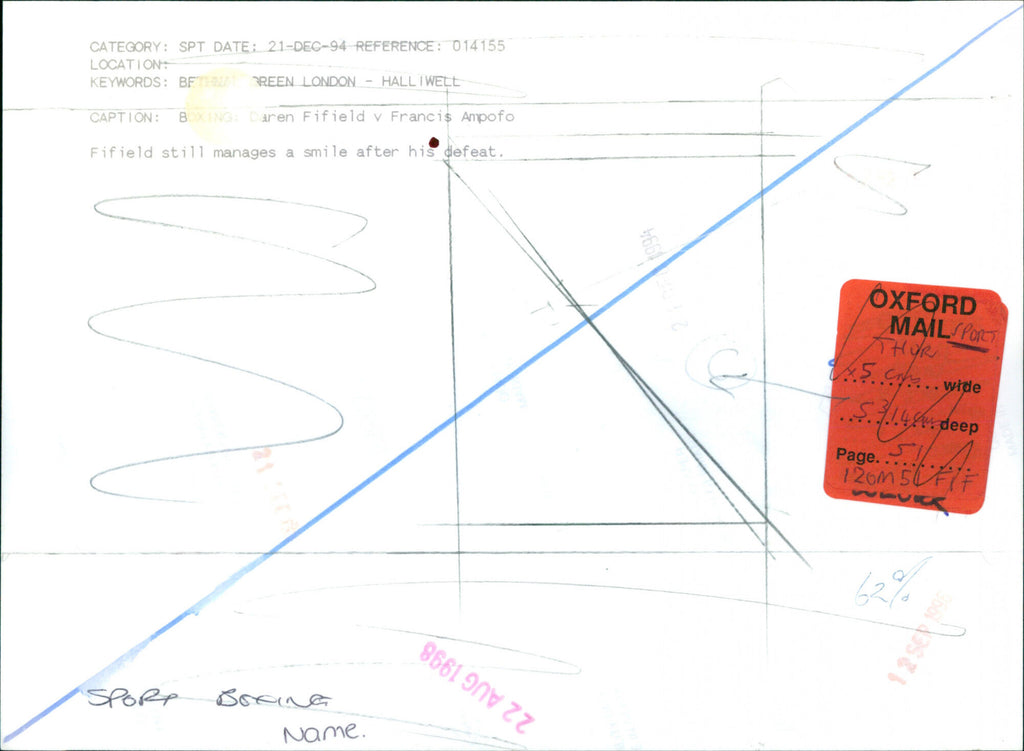 CATEGORY: SPT DATE: 21-DEC-94 REFERENCE: 014155
LOCATION:
KEYWORDS: BETHNAL GREEN LONDON - HALLIWELL
CAPTION: BOXING: Daren Fifield v Francis Ampofo
Fifield still manages a smile after his defeat.
1994
OXFORD
MAIL SPORT
THUR
x5 cms wide
deep
Page. 51
120M51 F/F
62%
12 SEP 1995
22 AUG 1998
SPORT BOXING
Name.